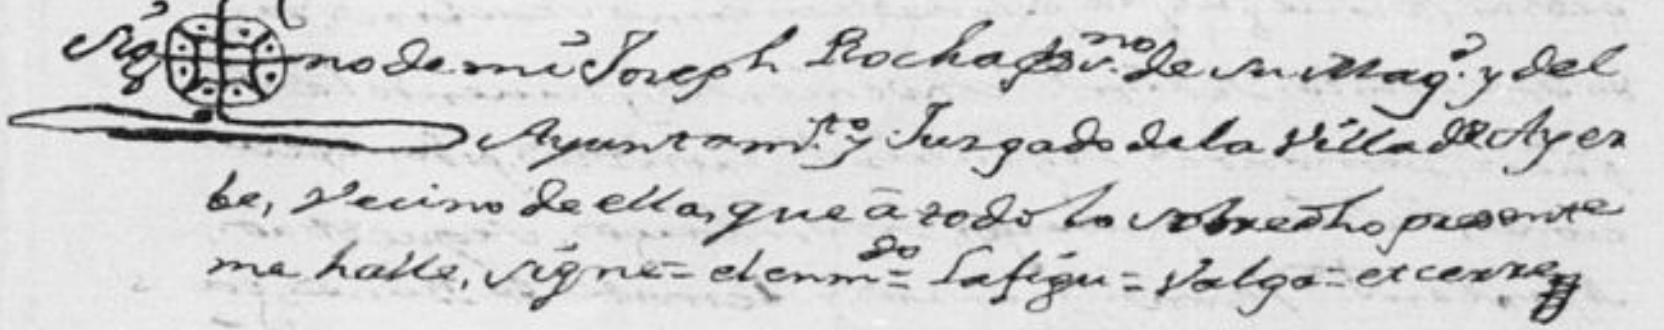 Sig no de mi Joseph Rocha Ssno. de su Magd. y del
Ayuntamto. y Juzgado de la Villa de Ayer
be, vecino de ella, que â todo lo sobredho presente
me halle, signe = el enmdo = Lafigu = Valga = et cerre